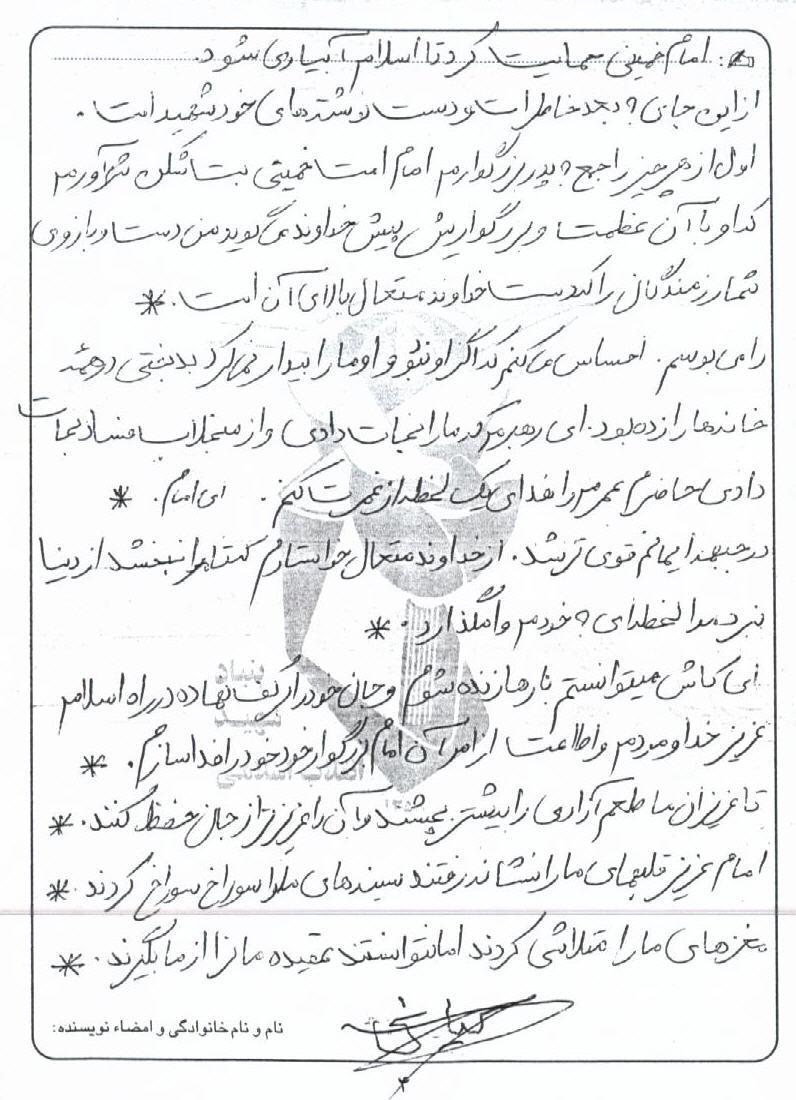 امام خمینی حمایت کرد تا اسلام آبیاری شود.
از این جای به بعد خاطرات و دست نوشته‌های خود شهید است.
اول از هر چیز راجع به پدر بزرگوارم امام امت خمینی بت شکن
که او با آن عظمت و بزرگواریش پیش خداوند می گوید من دست و بازوی
شما رزمندگان را که دست خداوند متعال بالای آن است. *
را می بوسم. احساس می کنم که اگر او نبود و او ما را بیدار نمی کرد بدبختی در همه
خانه‌ها را زده بود. ای رهبرم که ما را نجات دادی و از منجلاب فساد نجات
دادی حاضرم عمرم را فدای یک لحظه از عمرت کنم. ای امام. *
در جبهه ایمانم قوی تر شد. از خداوند متعال خواستارم که تا مرا نبخشد از دنیا
نبرد مرا لحظه‌ای به خودم وا نگذارد. *
ای کاش میتوانستم بارها زنده شوم و جان خود را بر کف نهاده در راه اسلام
عزیز خدا و مردم و اطاعت از امر آن امام بزرگوار خود خود را فدا سازم. *
تا عزیزان ما طعم آزادی را بیشتر بچشند و آن را عزیزتر از جان حفظ کنند. *
امام عزیز قلبهای ما را نشانه رفتند سینه‌های ما را سوراخ سوراخ کردند *
مغزهای ما را متلاشی کردند اما نتوانستند عقیده ما را از ما بگیرند. *
نام و نام خانوادگی و امضاء نویسنده:
۴